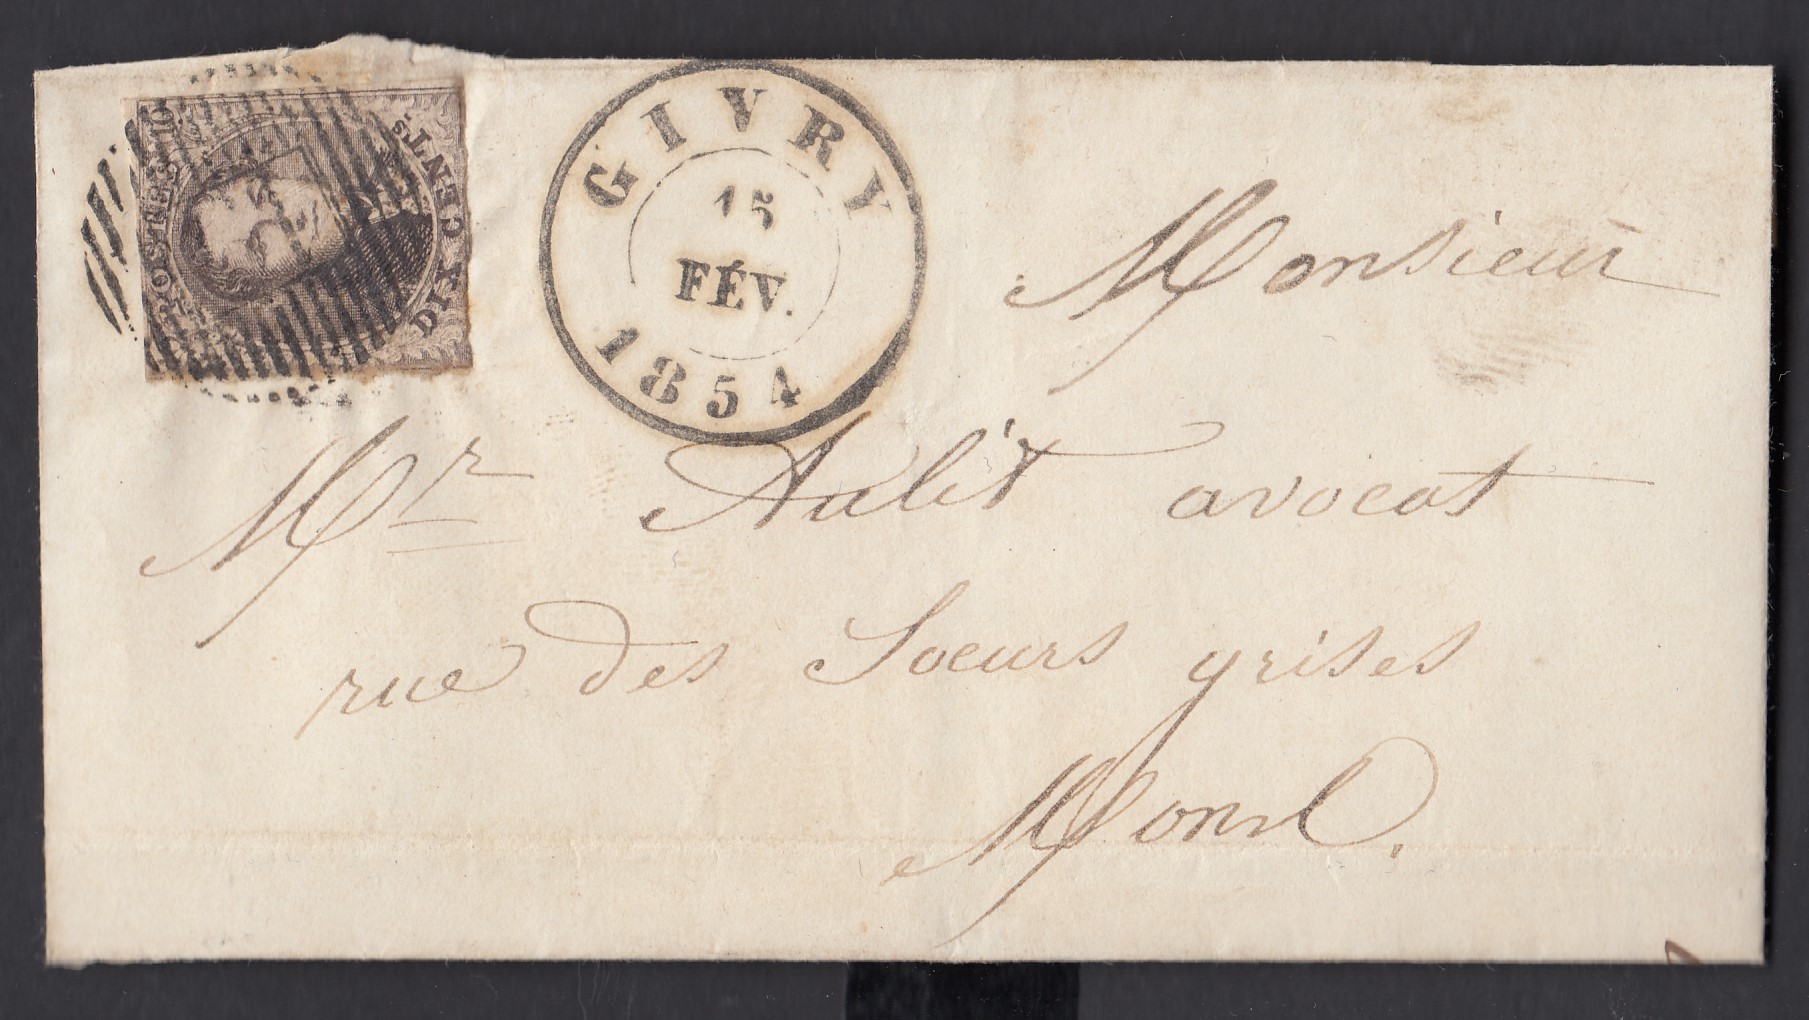 POSTES 10
DIX CENTS
GIVRY
15
FÉV.
1854
Monsieur
Mr Aulit avocat
rue des Soeurs grises
Mons.